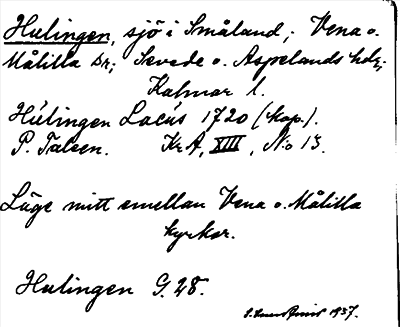 Hulingen, sjö i Småland; Vena o.
Målilla sr; Sevede o. Aspelands hdr;
Kalmar l.
Húlingen Lacús 1720 (kop.).
P. Talsen. KrA, XIII, No 13.
Läge mitt emellan Vena o. Målilla
kyrkor.
Hulingen G. 28.
1937.